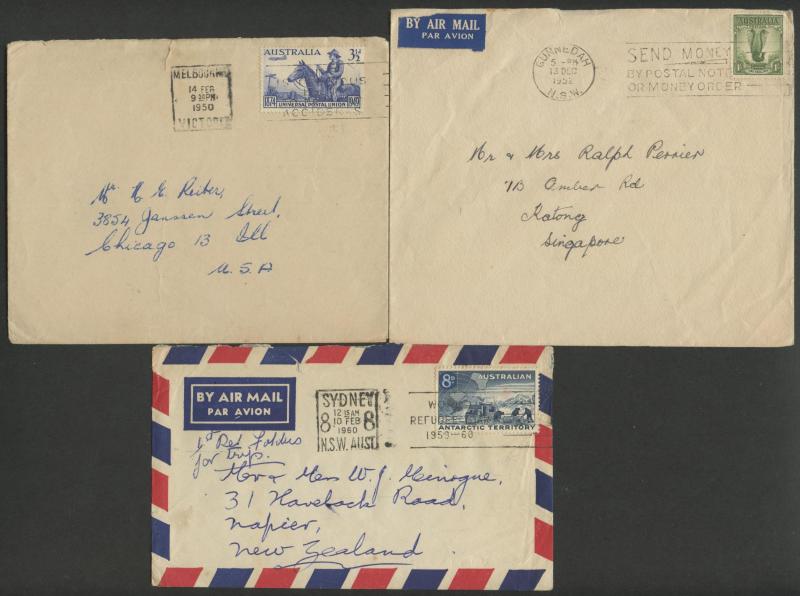 MELBOURNE
14 FEB
9 30PM
1950
VICTORIA
AUSTRALIA 3½D
1874 UNIVERSAL POSTAL UNION 1949
ACCIDENTS
Mr
3854 Janssen Street,
Chicago 13 Ill
U.S.A
BY AIR MAIL
PAR AVION
GUNNEDAH
5 - PM
13 DEC
1952
N.S.W.
SEND MONEY
BY POSTAL NOTE
OR MONEY ORDER
AUSTRALIA
Mr & Mrs Ralph Perrier
7B Amber Rd
Katong
Singapore
BY AIR MAIL
PAR AVION
SYDNEY
12 15 AM
8 10 FEB 8
1960
N.S.W. AUST
8D AUSTRALIAN
ANTARCTIC TERRITORY
WO
REFUGEE
1959-60
for trip.
Mr & Mrs W. J.
31 Havelock Road,
Napier,
New Zealand